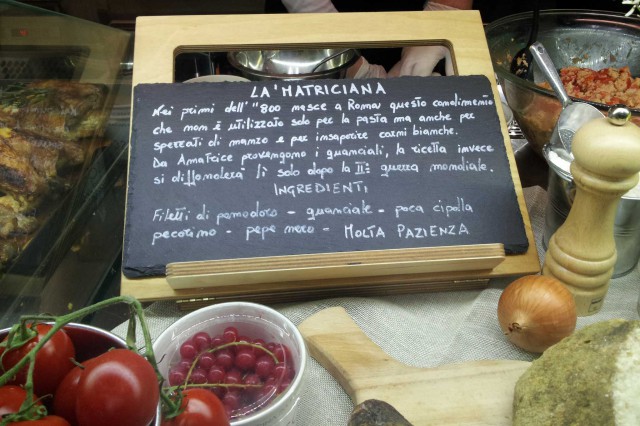 LA'MATRICIANA
Nei primi dell' "800 nasce a Roma questo condimento
che non è utilizzato solo per la pasta ma anche per
spezzati di manzo e per insaporire carni bianche.
Da Amatrice provengono i guanciali, la ricetta invece
si diffonderà lì solo dopo la IIª guerra mondiale.
INGREDIENTI
Filetti di pomodoro - guanciale - poca cipolla
pecorino - pepe nero - MOLTA PAZIENZA